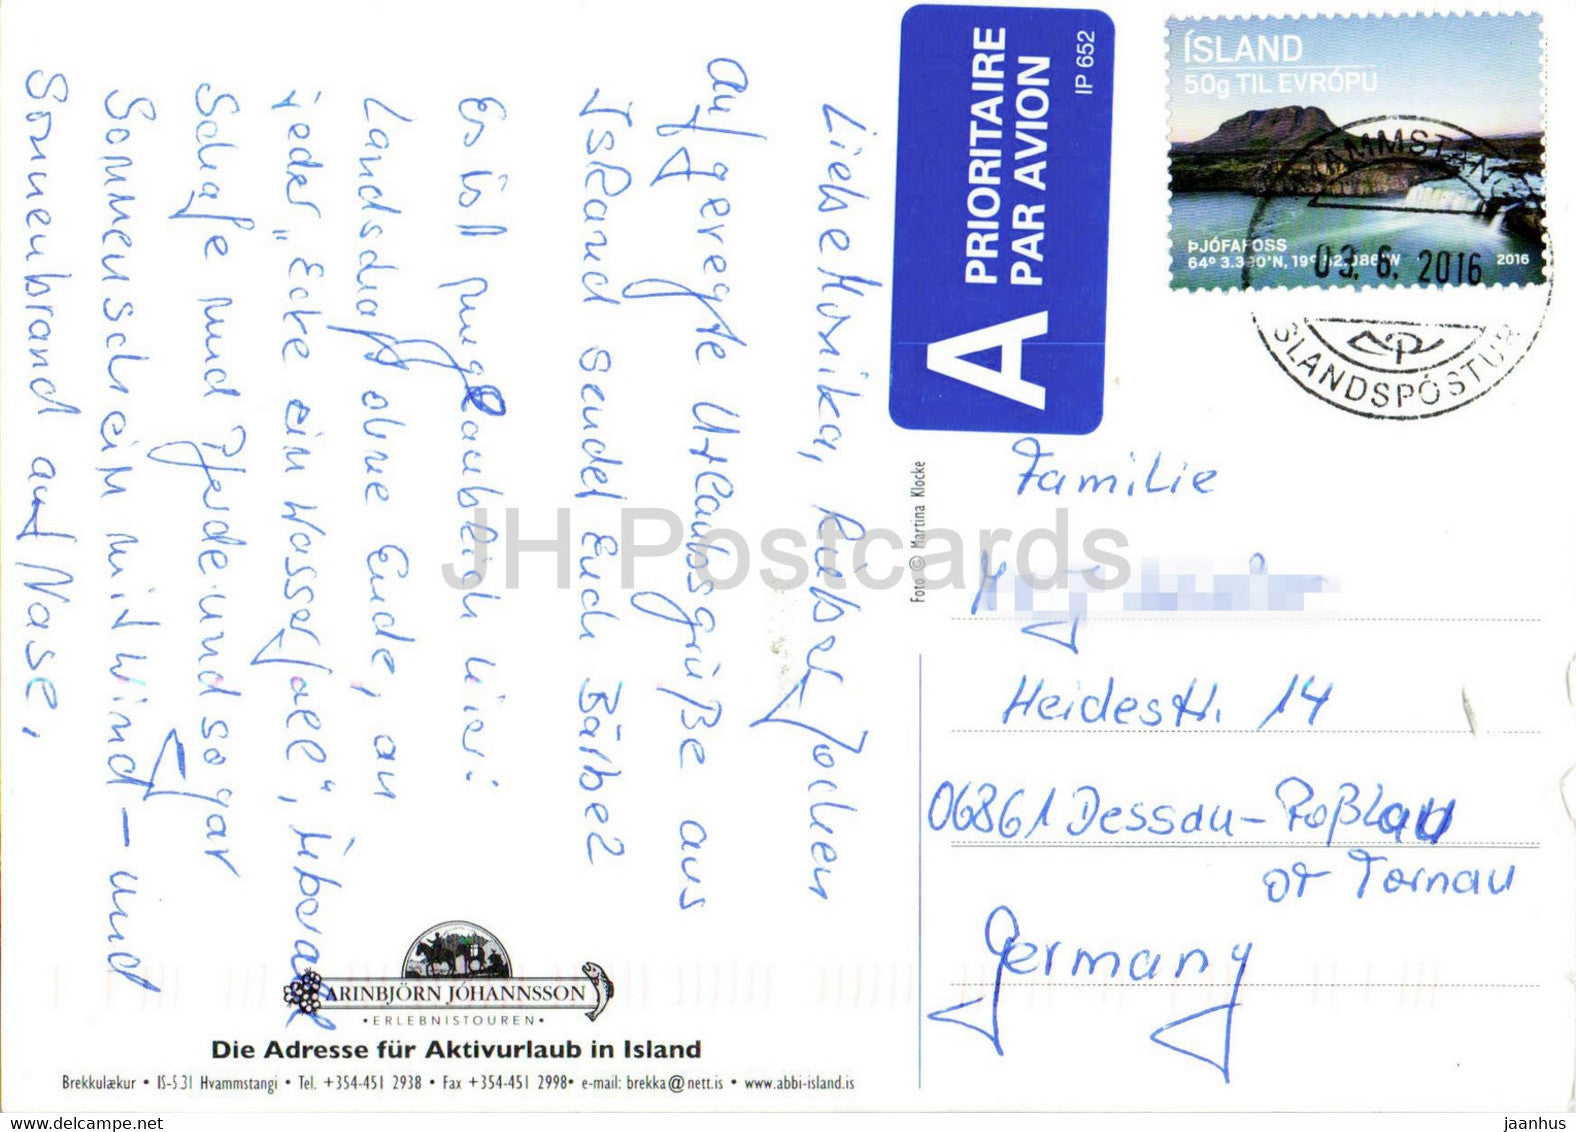 Liebe Monika, lieber Jochen
aufgeregte Urlaubsgrüße aus
Island sendet Euch Bärbel
Es ist unglaublich hier:
Landschaft ohne Ende, an
jeder „Ecke ein Wasserfall“, überall
Schafe und Pferde und sogar
Sonnenschein mit Wind – und
Sonnenbrand auf Nase,
A PRIORITAIRE
PAR AVION
IP 652
ÍSLAND
50g TIL EVRÓPU
ÞJÓFAFOSS
2016
03.6. 2016
ÍSLANDSPÓSTUR
Foto © Martina Klocke
Familie
Heidestr. 14
06861 Dessau-Roßlau
OT Tornau
Germany
ARINBJÖRN JÓHANNSSON
• ERLEBNISTOUREN •
Die Adresse für Aktivurlaub in Island
Brekkulækur • IS-531 Hvammstangi • Tel. +354-451 2938 • Fax +354-451 2998• e-mail: brekka@nett.is • www.abbi-island.is
JH Postcards
www.delcampe.net
jaanhus